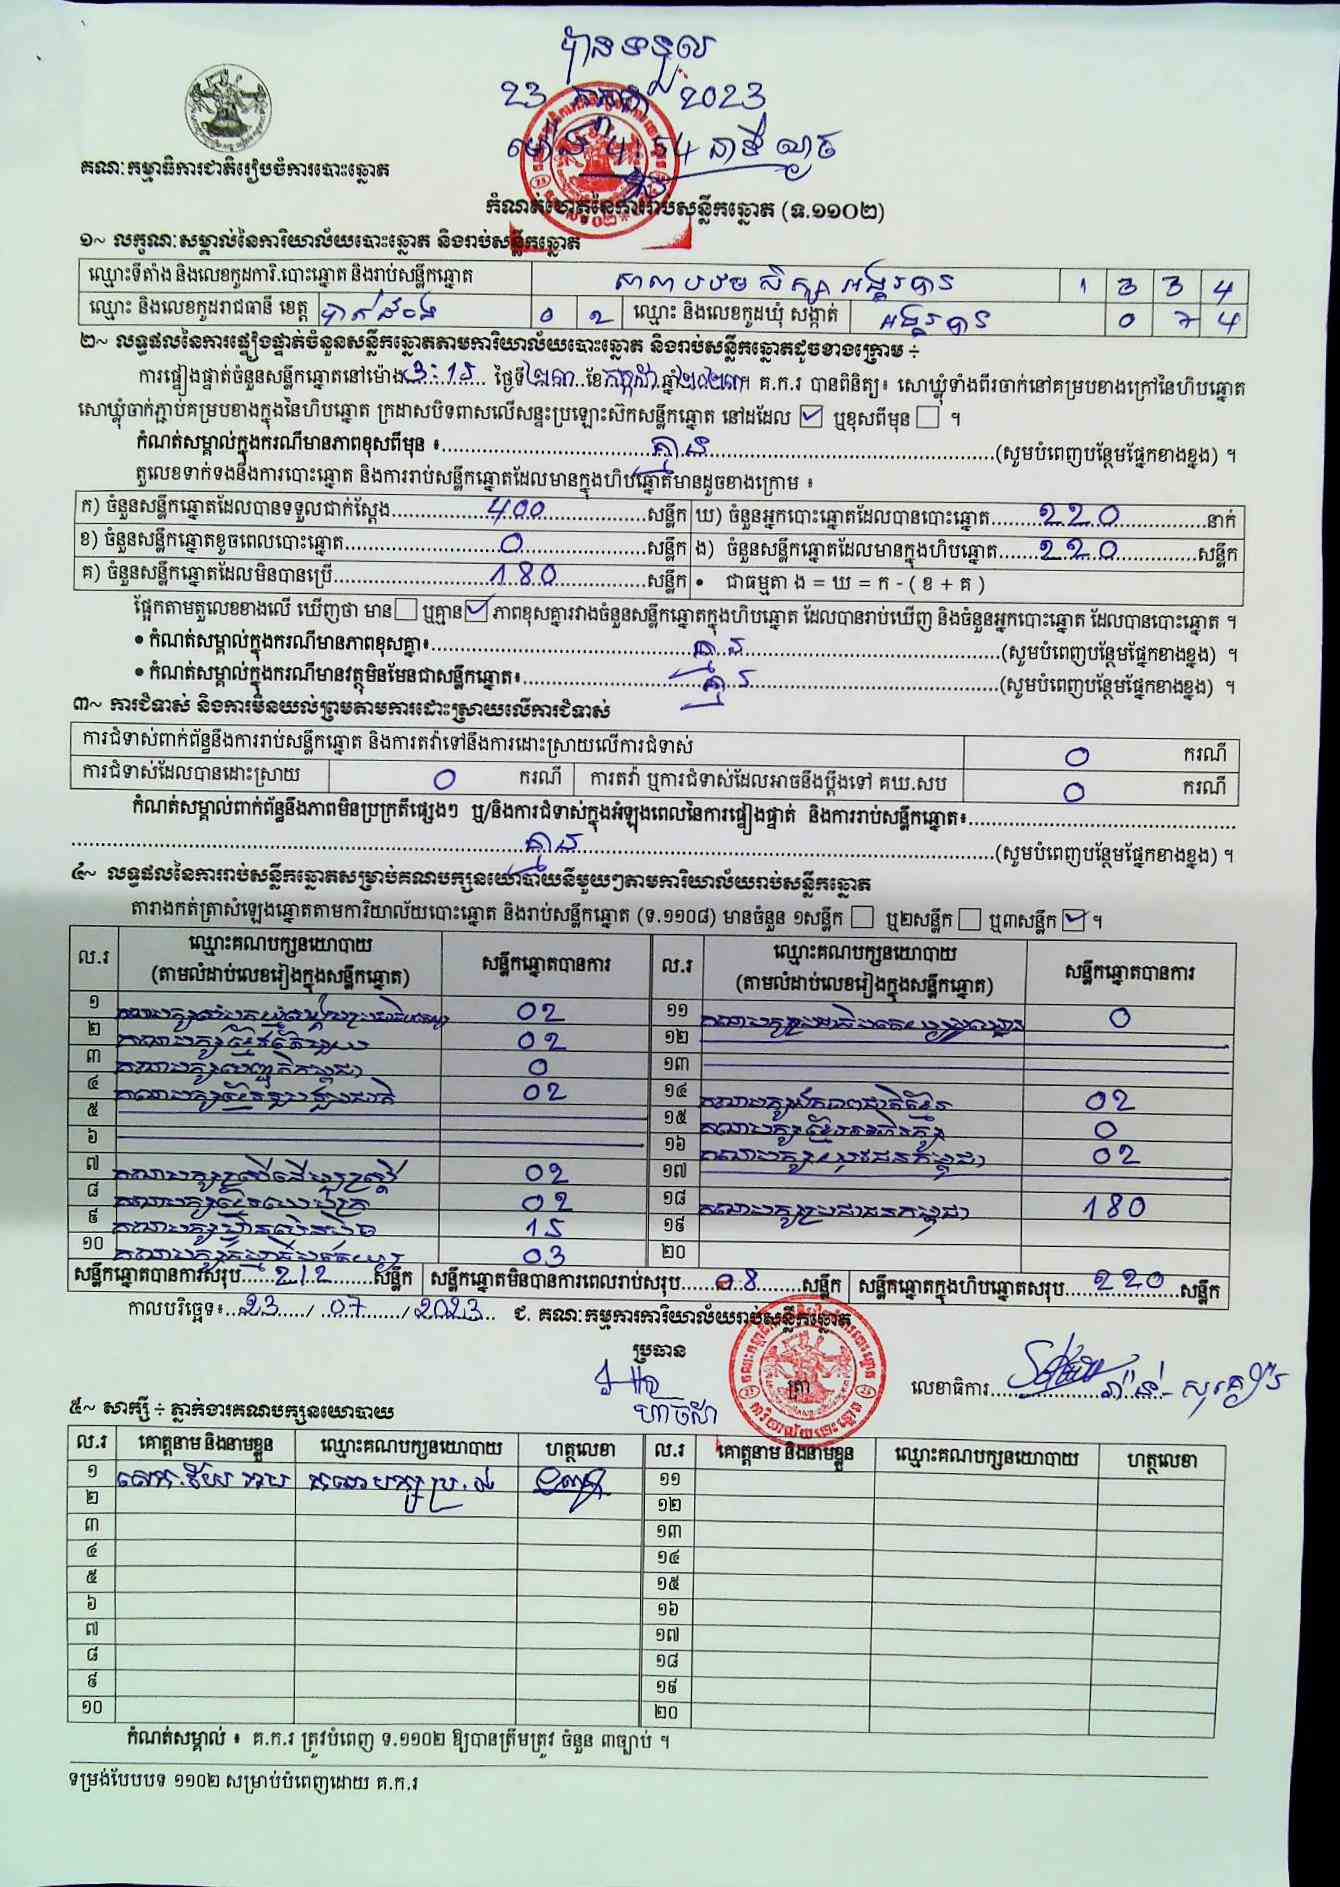 បានទទួល
23 កក្កដា 2023
ម៉ោង 4:54 នាទី ល្ងាច
គណៈកម្មាធិការជាតិរៀបចំការបោះឆ្នោត
កំណត់ហេតុនៃការរាប់សន្លឹកឆ្នោត (ទ.១១០២)
១~ លក្ខណៈសម្គាល់នៃការិយាល័យបោះឆ្នោត និងរាប់សន្លឹកឆ្នោត
ឈ្មោះទីតាំង និងលេខកូដការិ.បោះឆ្នោត និងរាប់សន្លឹកឆ្នោត សាលាបឋមសិក្សា អង្គរបាន 1 3 3 4
ឈ្មោះ និងលេខកូដរាជធានី ខេត្ត បាត់ដំបង 0 2 ឈ្មោះ និងលេខកូដឃុំ សង្កាត់ អង្គរបាន 0 7 4
២~ លទ្ធផលនៃការផ្ទៀងផ្ទាត់ចំនួនសន្លឹកឆ្នោតតាមការិយាល័យបោះឆ្នោត និងរាប់សន្លឹកឆ្នោតដូចខាងក្រោម ÷
ការផ្ទៀងផ្ទាត់ចំនួនសន្លឹកឆ្នោតនៅម៉ោង 3:15 ថ្ងៃទី២៣ ខែកក្កដា ឆ្នាំ២០២៣។ គ.ក.រ បានពិនិត្យ៖ សោឃ្លុំទាំងពីរចាក់នៅគម្របខាងក្រៅនៃហិបឆ្នោត
សោឃ្លុំចាក់ភ្ជាប់គម្របខាងក្នុងនៃហិបឆ្នោត ក្រដាសបិទពាសលើសន្ទះប្រឡោះសិកសន្លឹកឆ្នោត នៅដដែល ☑ ឬខុសពីមុន ☐ ។
កំណត់សម្គាល់ក្នុងករណីមានភាពខុសពីមុន ៖ គ្មាន (សូមបំពេញបន្ថែមផ្នែកខាងខ្នង) ។
តួលេខទាក់ទងនឹងការបោះឆ្នោត និងការរាប់សន្លឹកឆ្នោតដែលមានក្នុងហិបឆ្នោតមានដូចខាងក្រោម ៖
ក) ចំនួនសន្លឹកឆ្នោតដែលបានទទួលជាក់ស្តែង 400 សន្លឹក ឃ) ចំនួនអ្នកបោះឆ្នោតដែលបានបោះឆ្នោត 220 នាក់
ខ) ចំនួនសន្លឹកឆ្នោតខូចពេលបោះឆ្នោត 0 សន្លឹក ង) ចំនួនសន្លឹកឆ្នោតដែលមានក្នុងហិបឆ្នោត 220 សន្លឹក
គ) ចំនួនសន្លឹកឆ្នោតដែលមិនបានប្រើ 180 សន្លឹក • ជាធម្មតា ង = ឃ = ក - ( ខ + គ )
ផ្អែកតាមតួលេខខាងលើ ឃើញថា មាន ☐ ឬគ្មាន ☑ ភាពខុសគ្នារវាងចំនួនសន្លឹកឆ្នោតក្នុងហិបឆ្នោត ដែលបានរាប់ឃើញ និងចំនួនអ្នកបោះឆ្នោត ដែលបានបោះឆ្នោត ។
• កំណត់សម្គាល់ក្នុងករណីមានភាពខុសគ្នា៖ គ្មាន (សូមបំពេញបន្ថែមផ្នែកខាងខ្នង) ។
• កំណត់សម្គាល់ក្នុងករណីមានវត្ថុមិនមែនជាសន្លឹកឆ្នោត៖ គ្មាន (សូមបំពេញបន្ថែមផ្នែកខាងខ្នង) ។
៣~ ការជំទាស់ និងការមិនយល់ព្រមតាមការដោះស្រាយលើការជំទាស់
ការជំទាស់ពាក់ព័ន្ធនឹងការរាប់សន្លឹកឆ្នោត និងការតវ៉ាទៅនឹងការដោះស្រាយលើការជំទាស់ 0 ករណី
ការជំទាស់ដែលបានដោះស្រាយ 0 ករណី ការតវ៉ា ឬការជំទាស់ដែលអាចនឹងប្តឹងទៅ គឃ.សប 0 ករណី
កំណត់សម្គាល់ពាក់ព័ន្ធនឹងភាពមិនប្រក្រតីផ្សេងៗ ឬ/និងការជំទាស់ក្នុងអំឡុងពេលនៃការផ្ទៀងផ្ទាត់ និងការរាប់សន្លឹកឆ្នោត៖
គ្មាន (សូមបំពេញបន្ថែមផ្នែកខាងខ្នង) ។
៤~ លទ្ធផលនៃការរាប់សន្លឹកឆ្នោតសម្រាប់គណបក្សនយោបាយនីមួយៗតាមការិយាល័យរាប់សន្លឹកឆ្នោត
តារាងកត់ត្រាសំឡេងឆ្នោតតាមការិយាល័យបោះឆ្នោត និងរាប់សន្លឹកឆ្នោត (ទ.១១០៨) មានចំនួន ១សន្លឹក ☐ ឬ២សន្លឹក ☐ ឬ៣សន្លឹក ☑ ។
ល.រ ឈ្មោះគណបក្សនយោបាយ (តាមលំដាប់លេខរៀងក្នុងសន្លឹកឆ្នោត) សន្លឹកឆ្នោតបានការ ល.រ ឈ្មោះគណបក្សនយោបាយ (តាមលំដាប់លេខរៀងក្នុងសន្លឹកឆ្នោត) សន្លឹកឆ្នោតបានការ
១ 02 ១១ 0
២ 02 ១២
៣ 0 ១៣
៤ 02 ១៤ គណបក្សឯកភាពជាតិខ្មែរ 02
៥ ១៥ 0
៦ ១៦ គណបក្សយុវជនកម្ពុជា 02
៧ គណបក្សស្ត្រីដើម្បីស្ត្រី 02 ១៧
៨ 02 ១៨ គណបក្សប្រជាជនកម្ពុជា 180
៩ គណបក្សហ្វ៊ុនស៊ិនប៉ិច 15 ១៩
១០ 03 ២០
សន្លឹកឆ្នោតបានការសរុប 212 សន្លឹក សន្លឹកឆ្នោតមិនបានការពេលរាប់សរុប 08 សន្លឹក សន្លឹកឆ្នោតក្នុងហិបឆ្នោតសរុប 220 សន្លឹក
កាលបរិច្ឆេទ៖ 23 / 07 / 2023 ជ. គណៈកម្មការការិយាល័យរាប់សន្លឹកឆ្នោត
ប្រធាន
ត្រា
លេខាធិការ
៥~ សាក្សី ÷ ភ្នាក់ងារគណបក្សនយោបាយ
ល.រ គោត្តនាម និងនាមខ្លួន ឈ្មោះគណបក្សនយោបាយ ហត្ថលេខា ល.រ គោត្តនាម និងនាមខ្លួន ឈ្មោះគណបក្សនយោបាយ ហត្ថលេខា
១ ១១
២ ១២
៣ ១៣
៤ ១៤
៥ ១៥
៦ ១៦
៧ ១៧
៨ ១៨
៩ ១៩
១០ ២០
កំណត់សម្គាល់ ៖ គ.ក.រ ត្រូវបំពេញ ទ.១១០២ ឱ្យបានត្រឹមត្រូវ ចំនួន ៣ច្បាប់ ។
ទម្រង់បែបបទ ១១០២ សម្រាប់បំពេញដោយ គ.ក.រ